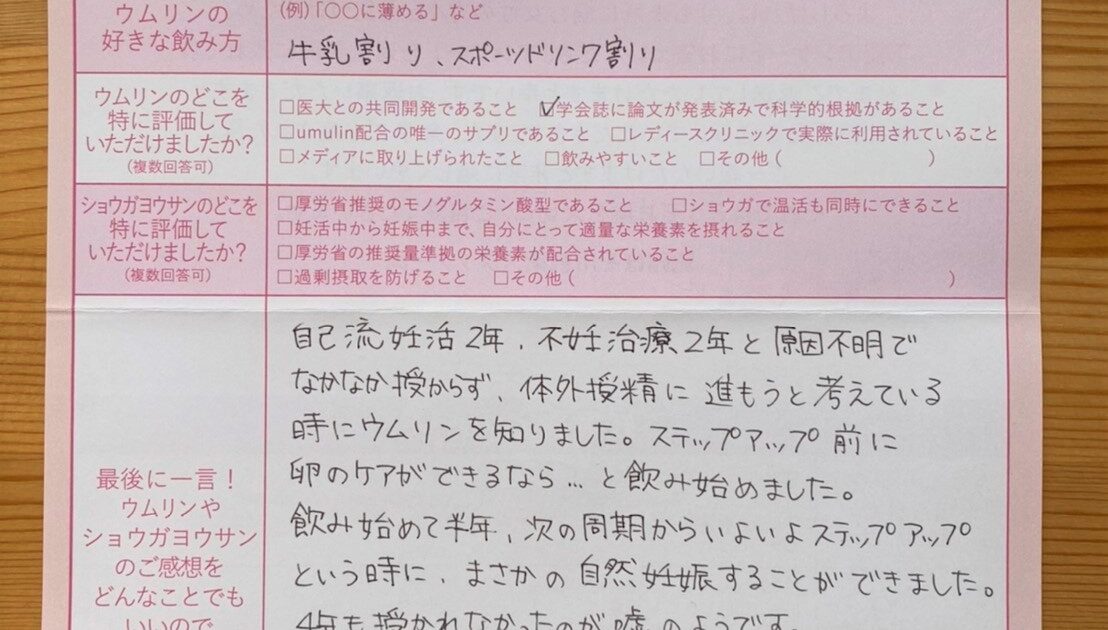 ウムリンの
好きな飲み方
(例)「〇〇に薄める」など
牛乳割り、スポーツドリンク割り
ウムリンのどこを
特に評価して
いただけましたか?
(複数回答可)
□医大との共同開発であること ☑学会誌に論文が発表済みで科学的根拠があること
□umulin配合の唯一のサプリであること □レディースクリニックで実際に利用されていること
□メディアに取り上げられたこと □飲みやすいこと □その他( )
ショウガヨウサンのどこを
特に評価して
いただけましたか?
(複数回答可)
□厚労省推奨のモノグルタミン酸型であること □ショウガで温活も同時にできること
□妊活中から妊娠中まで、自分にとって適量な栄養素を摂れること
□厚労省の推奨量準拠の栄養素が配合されていること
□過剰摂取を防げること □その他( )
最後に一言!
ウムリンや
ショウガヨウサン
のご感想を
どんなことでも
いいので
自己流妊活2年、不妊治療2年と原因不明で
なかなか授からず、体外授精に進もうと考えている
時にウムリンを知りました。ステップアップ前に
卵のケアができるなら…と飲み始めました。
飲み始めて半年、次の周期からいよいよステップアップ
という時に、まさかの自然妊娠することができました。
4年も授かれなかったのが嘘のようです。